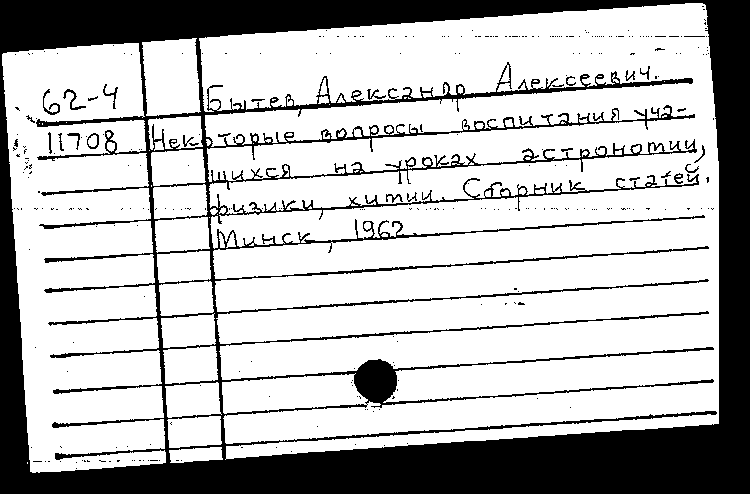 62-4 Бытев, Александр Алексеевич.
11708 Некоторые вопросы воспитания уча-
щихся на уроках астрономии,
физики, химии. Сборник статей.
Минск, 1962.